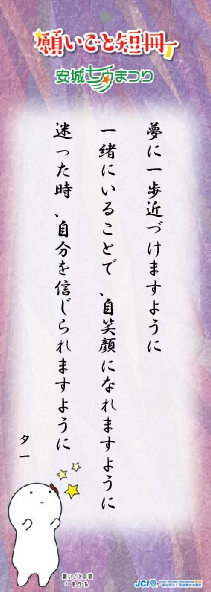 願いごと短冊
安城七夕まつり
夢に一歩近づけますように
一緒にいることで、自笑顔になれますように
迷った時、自分を信じられますように
ター
JCI